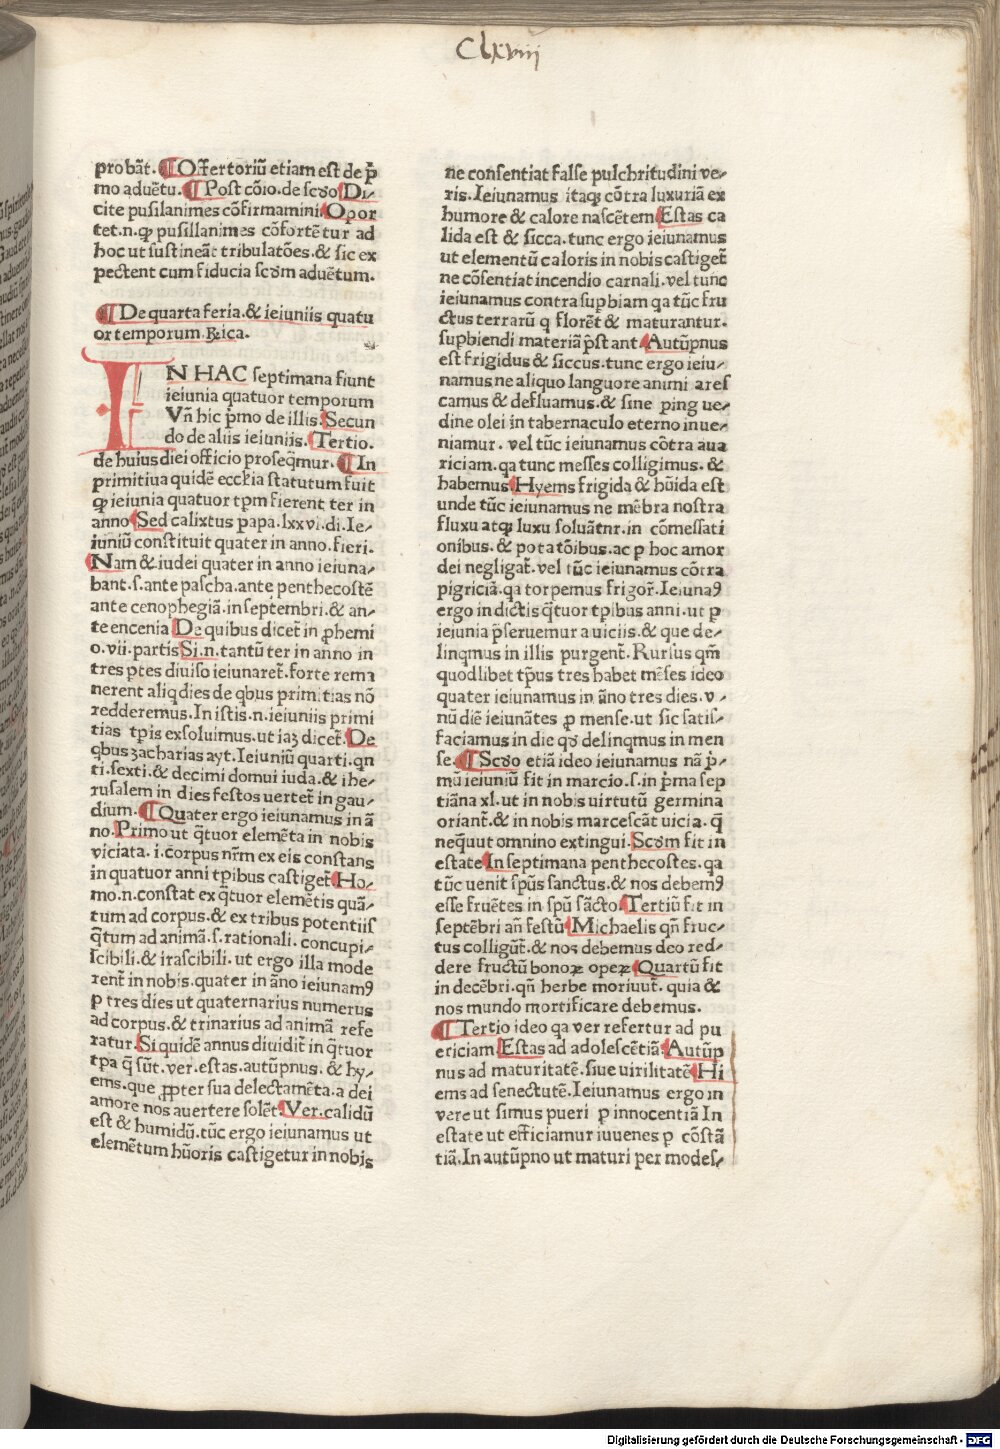 Clxviiij
probāt. ¶ Offertoriū etiam est de p̄
mo aduētu. ¶ Post cōio. de scd̄o Di⸗
cite pusilanimes cōfirmamini. Opor
tet .n. qꝫ pusillanimes cōfortētur ad
hoc ut sustineāt tribulatōes. & sic ex
pectent cum fiducia scd̄m aduētum.
¶ De quarta feria. & ieiuniis quatu
or temporum. Rica.
IN HAC septimana fiunt
ieiunia quatuor temporum
Vn̄ hic p̄mo de illis. Secun
do de aliis ieiuniis. Tertio.
de huius diei officio proseq̄mur. ¶ In
primitiua quidē ecclia statutum fuit
qꝫ ieiunia quatuor tp̄m fierent ter in
anno Sed calixtus papa. lxxvi. di. Ie⸗
iuniū constituit quater in anno. fieri.
Nam & iudei quater in anno ieiuna⸗
bant. s. ante pascha. ante penthecostē
ante cenophegiā. in septembri. & an⸗
te encenia De quibus dicet̄ in ꝓhemi
o. vii. partis Si .n. tantū ter in anno in
tres ptes diuiso ieiunaret̄. forte rema
nerent aliq̄ dies de qbus primitias nō
redderemus. In istis .n. ieiuniis primi
tias tp̄is exsoluimus. ut iaꝫ dicet̄. De
qbus zacharias ayt. Ieiuniū quarti. qn
ti. sexti. & decimi domui iuda. & ihe⸗
rusalem in dies festos uertet̄ in gau⸗
dium. ¶ Quater ergo ieiunamus in ā
no. Primo ut q̄tuor elemēta in nobis
viciata .i. corpus nr̄m ex eis constans
in quatuor anni tp̄ibus castiget̄ Ho⸗
mo .n. constat ex q̄tuor elemētis quā⸗
tum ad corpus. & ex tribus potentiis
q̄tum ad animā. s. rationali. concupi⸗
scibili. & irascibili. ut ergo illa mode
rent̄ in nobis. quater in āno ieiunamꝰ
ꝑ tres dies ut quaternarius numerus
ad corpus. & trinarius ad animā refe
ratur. Si quidē annus diuidit̄ in q̄tuor
tpa q̄ sūt. ver. estas. autūpnus. & hy⸗
ems. que ꝓpter sua delectamēta. a dei
amore nos auertere solēt. Ver. calidū
est & humidū. tūc ergo ieiunamus ut
elemētum hūoris castigetur in nobis
ne consentiat false pulchritudini ve⸗
ris. Ieiunamus itaqꝫ cōtra luxuriā ex
humore & calore nascētem Estas ca
lida est & sicca. tunc ergo ieiunamus
ut elementū caloris in nobis castiget̄
ne cōsentiat incendio carnali. vel tunc
ieiunamus contra supbiam qa tūc fru
ctus terrarū q florēt & maturantur.
supbiendi materiā p̄stant. Autūpnus
est frigidus & siccus. tunc ergo ieiu⸗
namus ne aliquo languore animi ares
camus & defluamus. & sine ping ue⸗
dine olei in tabernaculo eterno inue⸗
niamur. vel tūc ieiunamus cōtra aua
riciam. qa tunc messes colligimus. &
habemus Hyems frigida & hūida est
unde tūc ieiunamus ne mēbra nostra
fluxu atqꝫ luxu soluātnr. in cōmessati
onibus. & potatōibus. ac p hoc amor
dei negligat̄. vel tūc ieiunamus cōtra
pigriciā. qa torpemus frigor̄. Ieiunaꝰ
ergo in dictis q̄tuor tp̄ibus anni. ut ꝑ
ieiunia p̄seruemur a uiciis. & que de⸗
linqmus in illis purgent̄. Rursus qm̄
quodlibet tp̄us tres habet mēses ideo
quater ieiunamus in āno tres dies. v⸗
nū diē ieiunātes ꝑ mense. ut sic satis⸗
faciamus in die qd̄ delinqmus in men
se. ¶ Scd̄o etiā ideo ieiunamus nā p̄⸗
mū ieiuniū fit in marcio. s. in p̄ma sep
tiāna xl. ut in nobis uirtutū germina
oriant̄. & in nobis marcescāt uicia. q̄
neq̄uut omnino extingui. Scd̄m fit in
estate In septimana penthecostes. qa
tūc uenit sp̄us sanctus. & nos debemꝰ
esse fruētes in spū sācto. Tertiū fit in
septēbri an̄ festū Michaelis qn̄ fruc⸗
tus colligūt̄. & nos debemus deo red⸗
dere fructū bonoꝝ opeꝝ Quartū fit
in decēbri. qn̄ herbe moriuut̄. quia &
nos mundo mortificare debemus.
¶ Tertio ideo qa ver refertur ad pu
ericiam. Estas ad adolescētiā. Autūp
nus ad maturitatē. siue uirilitatē Hi
ems ad senectutē. Ieiunamus ergo in
vere ut simus pueri ꝑ innocentiā In
estate ut efficiamur iuuenes ꝑ cōstā
tiā. In autūpno ut maturi per modes⸗
Digitalisierung gefördert durch die Deutsche Forschungsgemeinschaft - DFG